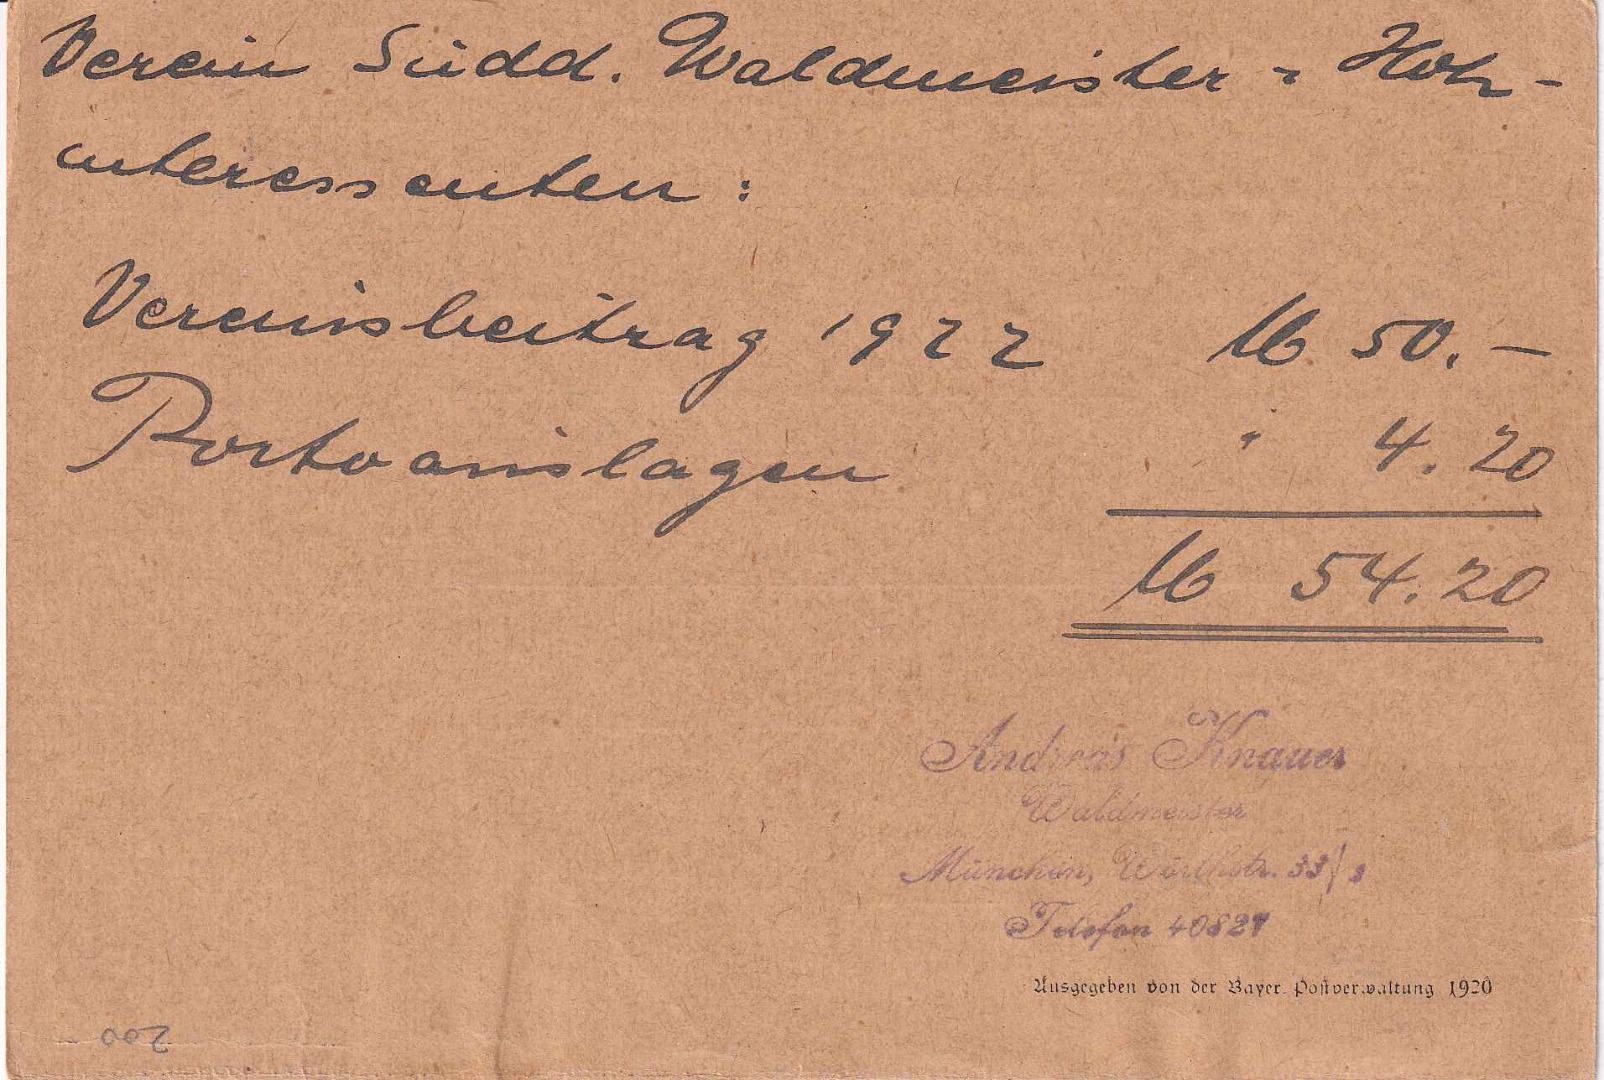 Verein Südd. Waldmeister - Holz-
interessenten:
Vereinsbeitrag 1922 M 50.—
Portoauslagen " 4.20
M 54.20
Andreas Knauer
Waldmeister
München, Wörthstr. 33/3
Telefon 40827
Ausgegeben von der Bayer. Postverwaltung 1920
200